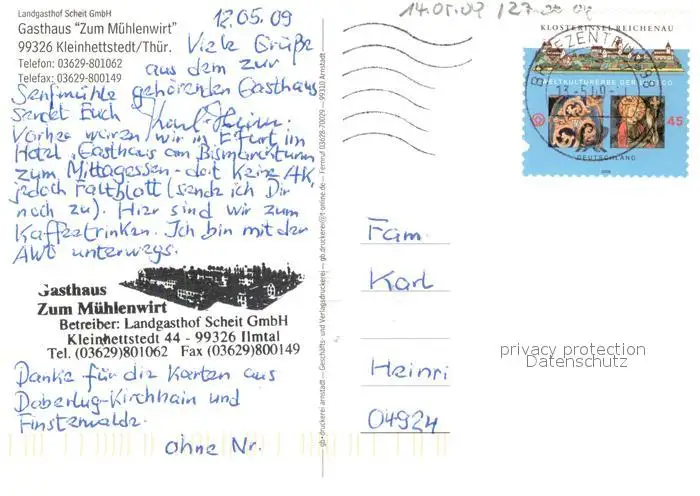 Landgasthof Scheit GmbH
Gasthaus "Zum Mühlenwirt"
99326 Kleinhettstedt/Thür.
Telefon: 03629-801062
Telefax: 03629-800149
12.05.09
Viele Grüße
aus dem zur
Senfmühle gehörenden Gasthaus
sendet Euch Karl-Heinz.
Vorher waren wir in Erfurt im
Hotel "Gasthaus am Bismarckturm
zum Mittagessen - dort keine AK,
jedoch Faltblatt (sende ich Dir
noch zu). Hier sind wir zum
Kaffeetrinken. Ich bin mit der
AWO unterwegs.
Gasthaus
Zum Mühlenwirt
Betreiber: Landgasthof Scheit GmbH
Kleinhettstedt 44 - 99326 Ilmtal
Tel. (03629)801062 Fax (03629)800149
Danke für die Karten aus
Doberlug-Kirchhain und
Finsterwalde.
ohne Nr.
gb-druckerei arnstadt — Geschäfts- und Verlagsdruckerei — gb.druckerei@t-online.de — Fernruf 03628-70029 — 99310 Arnstadt
14.05.09
KLOSTERINSEL REICHENAU
WELTKULTURERBE DER UNESCO
45
DEUTSCHLAND
BRIEFZENTRUM 98
13.-5.09.-
Fam.
Karl
Heinri
04924
privacy protection
Datenschutz